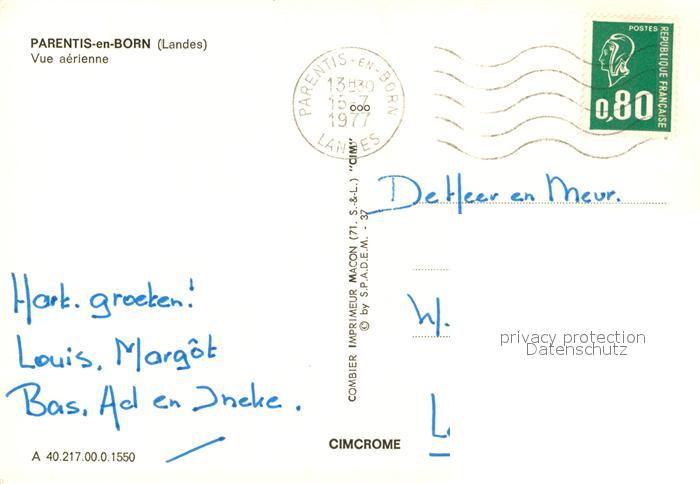 PARENTIS-en-BORN (Landes)
Vue aérienne
PARENTIS-EN-BORN
13H30
15-7
1977
LANDES
POSTES
REPUBLIQUE FRANÇAISE
0,80
De Heer en Meur.
W.
Hart. groeten!
Louis, Margôt
Bas, Ad en Ineke.
COMBIER IMPRIMEUR MACON (71. S.-&-L.) "CIM"
© by S.P.A.D.E.M. - 37
CIMCROME
A 40.217.00.0.1550
privacy protection
Datenschutz